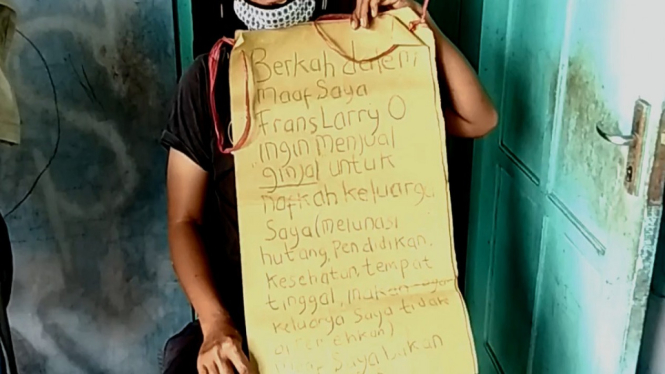 Berkah dalem
maaf Saya
Frans Larry O
ingin menjual
ginjal untuk
nafkah keluarga
Saya (melunasi
hutang, Pendidikan,
kesehatan, tempat
tinggal,
keluarga Saya tidak
Saya bukan